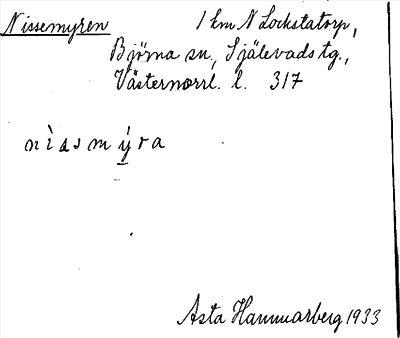 Nissemyren 1 km N Lockstatorp,
Björna sn, Själevads tg.,
Västernorrl. l. 317
nìssmýra
Asta Hammarberg 1933